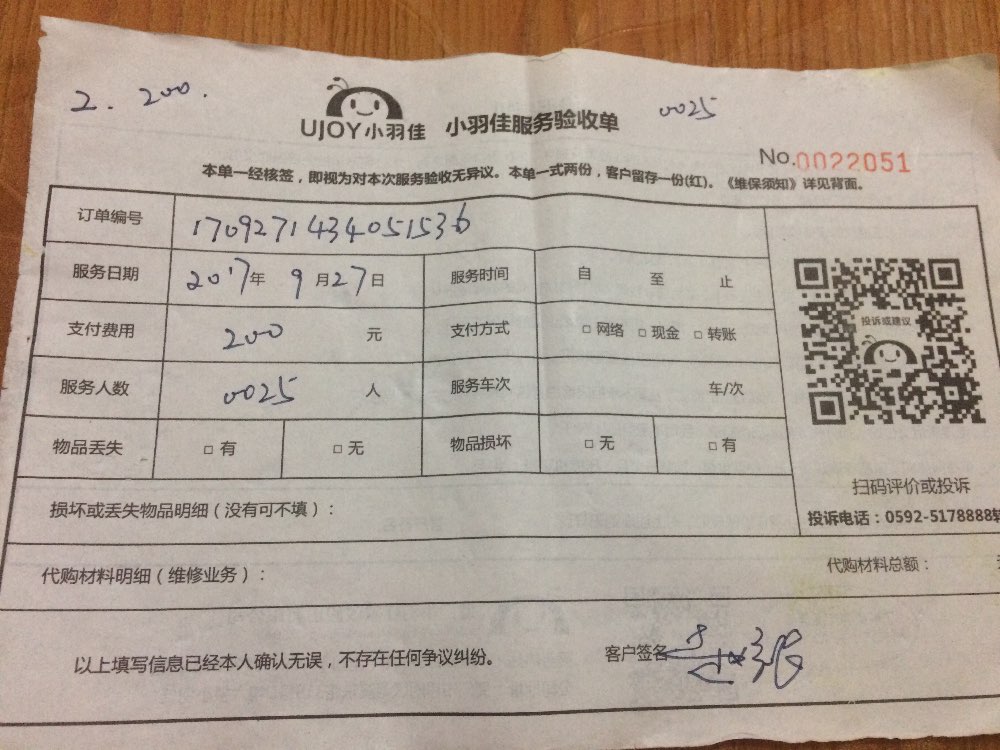 2. 200.
UJOY小羽佳 小羽佳服务验收单 0025
No.0022051
本单一经核签，即视为对本次服务验收无异议。本单一式两份，客户留存一份(红)。《维保须知》详见背面。
订单编号 1709271434051536
服务日期 2017年 9月27日 服务时间 自 至 止
支付费用 200 元 支付方式 □ 网络 □ 现金 □ 转账
投诉或建议
服务人数 0025 人 服务车次 车/次
物品丢失 □ 有 □ 无 物品损坏 □ 无 □ 有
扫码评价或投诉
损坏或丢失物品明细（没有可不填）：
投诉电话：0592-5178888转
代购材料明细（维修业务）：
代购材料总额：
以上填写信息已经本人确认无误，不存在任何争议纠纷。 客户签名